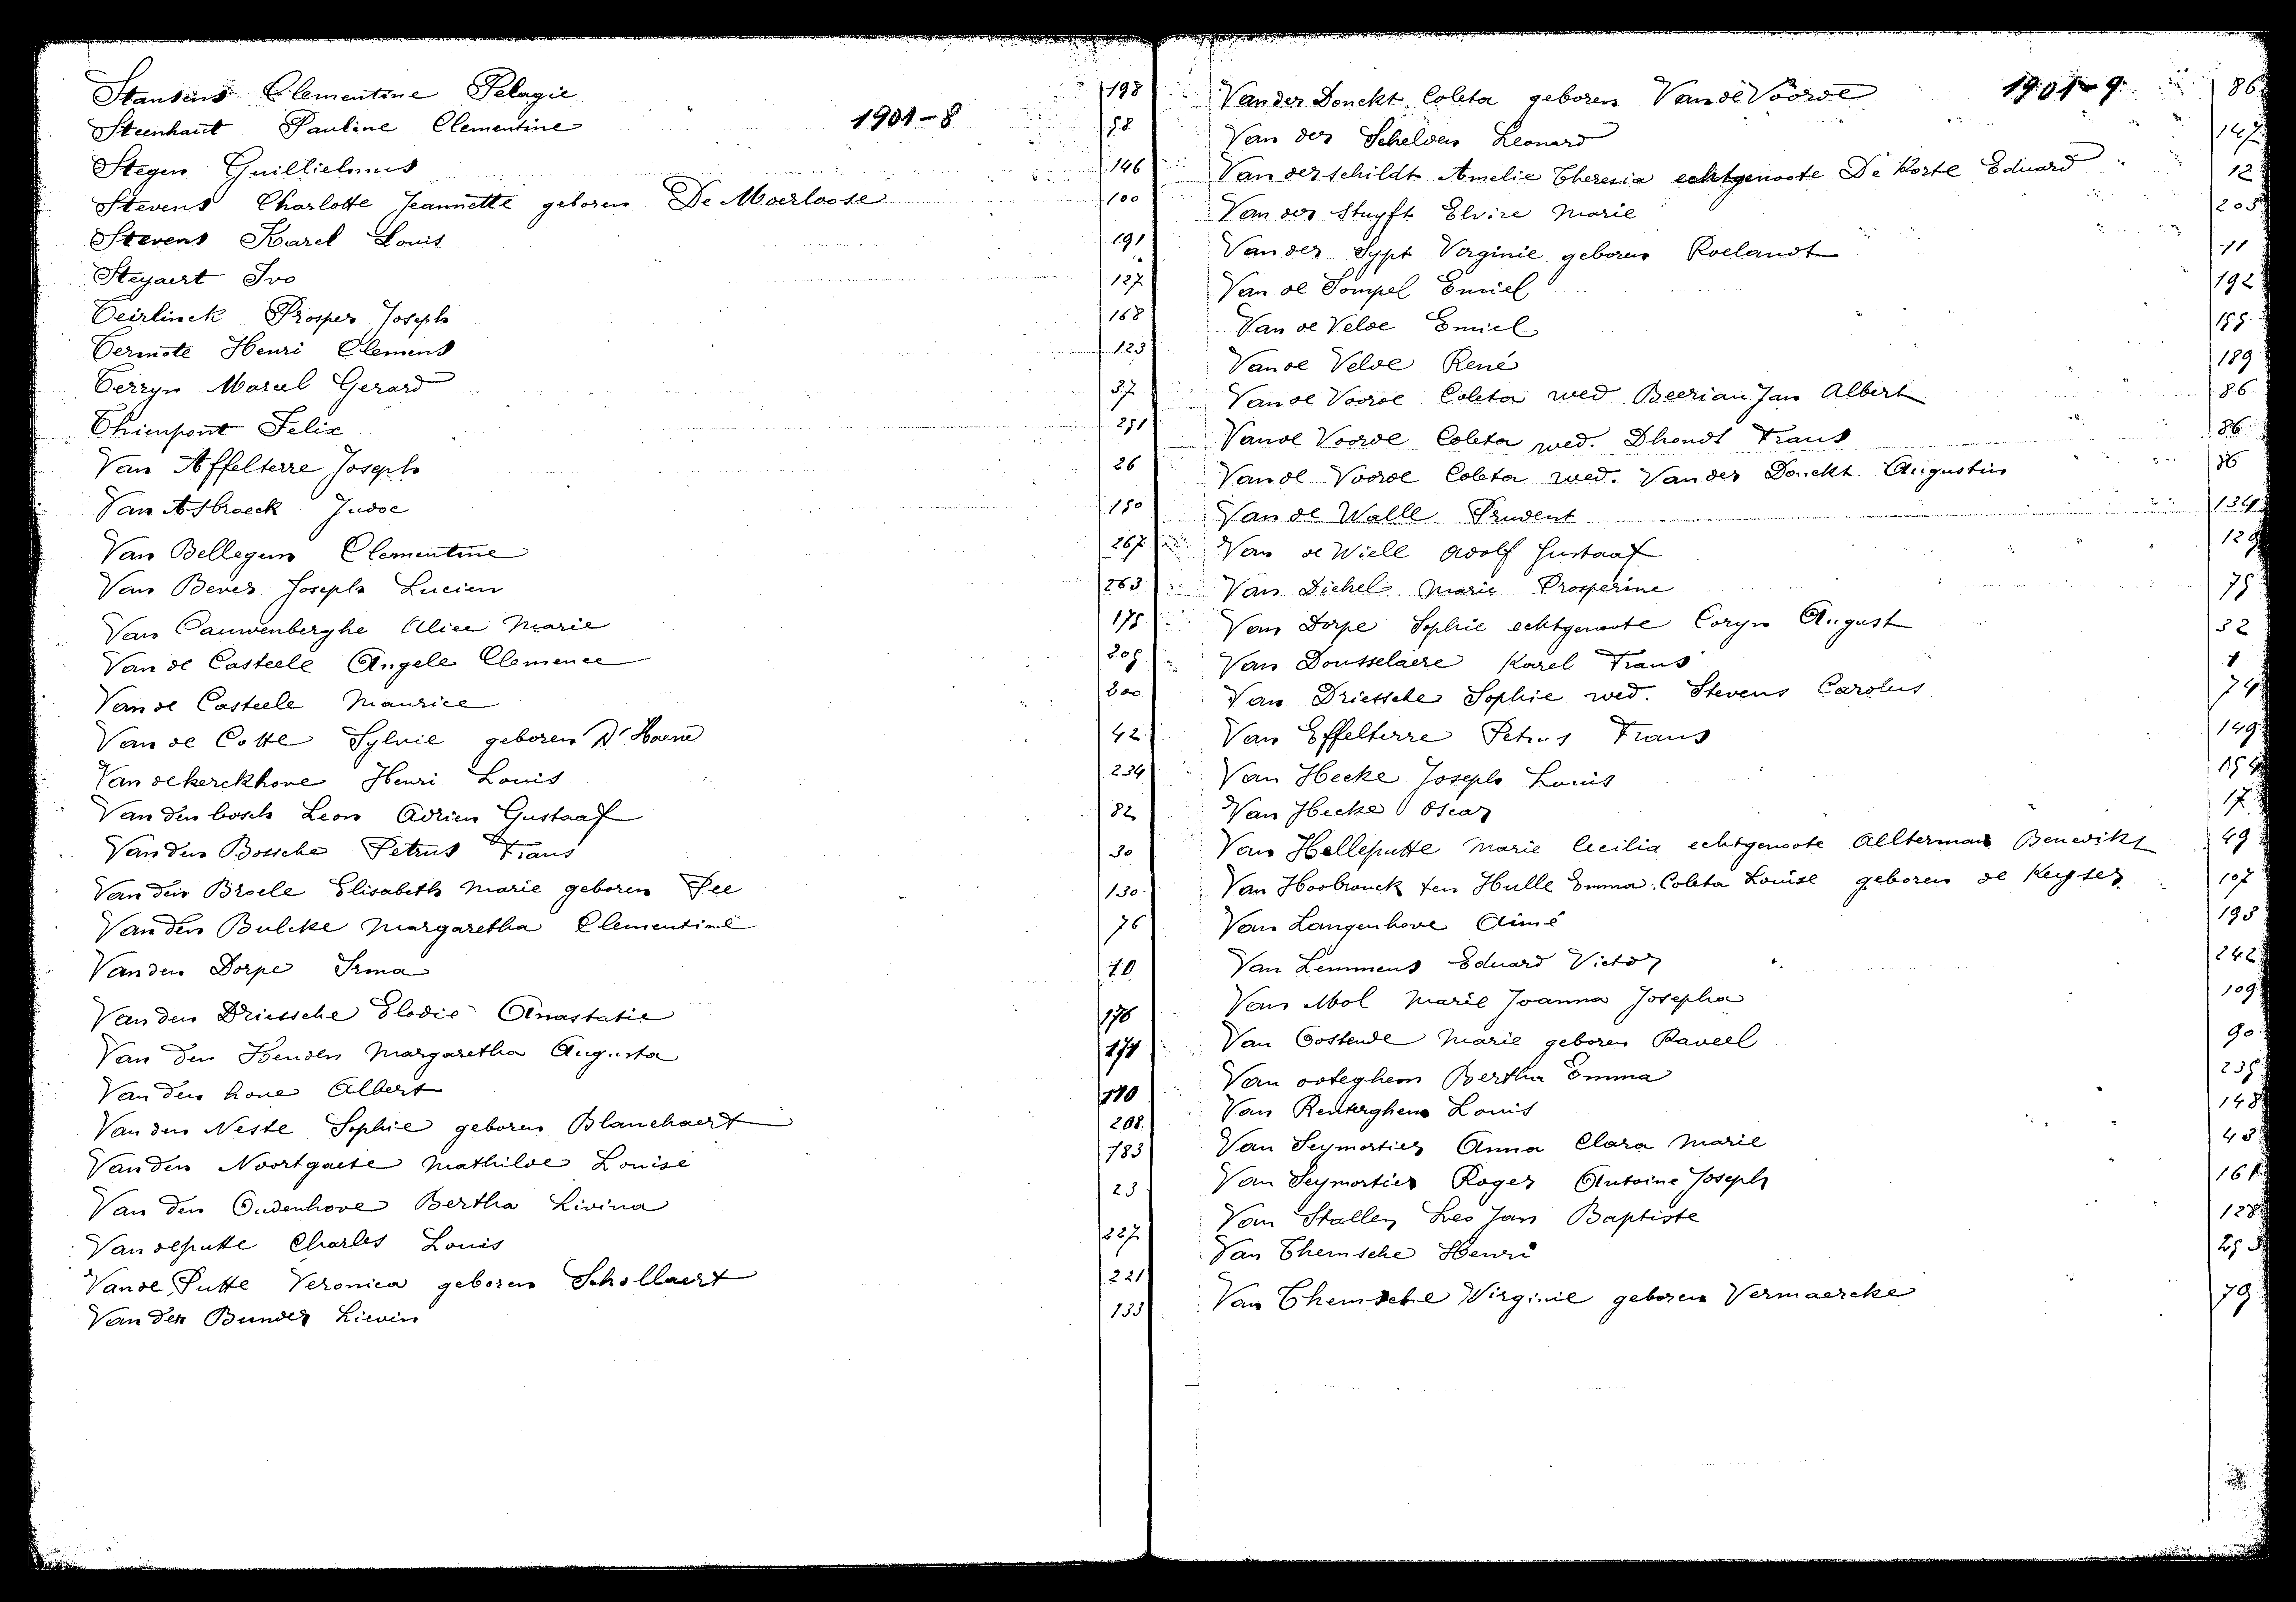 Stantens Clementine Pelagie 198
1901-8
Steenhaut Pauline Clementine 58
Stegen Guillielmus 146
Stevens Charlotte Jeannette geboren De Moerloose 100
Stevens Karel Louis 191
Steyaert Ivo 127
Teirlinck Prosper Joseph 168
Termote Henri Clement 123
Terryn Marcel Gerard 37
Thienpont Felix 251
Van Affelterre Joseph 26
Van Asbroeck Judoc 150
Van Bellegem Clementine 267
Van Bever Joseph Lucien 263
Van Cauwenberghe Alice Marie 175
Van de Casteele Angele Clemence 205
Van de Casteele Maurice 200
Van de Cotte Sylvie geboren D'Haene 42
Van dekerckhove Henri Louis 234
Van den bosch Leon Adrien Gustaaf 82
Van den Bossche Petrus Frans 30
Van den Broele Elisabeth Marie geboren Pee 130
Van den Bulcke Margaretha Clementine 76
Van den Dorpe Irma 10
Van den Driessche Elodie Anastatie 176
Van den Henden Margaretha Augusta 171
Van den hove Albert 110
Van den Neste Sophie geboren Blanchaert 208
Van den Noortgaete Mathilde Louise 183
Van den Oudenhove Bertha Livina 23
Van deputte Charles Louis 227
Van de Putte Veronica geboren Schollaert 221
Van der Bunder Lievin 133
Van der Donckt Coleta geboren Van de Voorde 86
1901-9
Van der Schelden Leonard 147
Van derschildt Amelie Theresia echtgenoote De Korte Eduard 12
Van der Stuyft Elvire Marie 203
Van der Sypt Virginie geboren Roelandt 11
Van de Tompel Emiel 192
Van de Velde Emiel 155
Van de Velde René 189
Van de Voorde Coleta wed Beeriau Jan Albert 86
Van de Voorde Coleta wed. Dhondt Frans 86
Van de Voorde Coleta wed. Van der Donckt Augustin 86
Van de Walle Prudent 134
Van de Wiele Adolf Gustaaf 129
Van Dichel Marie Prosperine 75
Van Dorpe Sophie echtgenoote Coryn August 32
Van Dousselaere Karel Frans 1
Van Driessche Sophie wed. Stevens Carolus 74
Van Effelterre Petrus Frans 149
Van Hecke Joseph Louis 154
Van Hecke Oscar 17
Van Helleputte Marie Cecilia echtgenoote Allterman Benedikt 49
Van Hoobrouck ten Hulle Emma Coleta Louise geboren de Keyser 107
Van Langenhove Aimé 193
Van Lemmens Eduard Victor 242
Van Mol Marie Joanna Josepha 109
Van Oostende Marie geboren Raveel 90
Van ooteghem Bertha Emma 235
Van Renterghem Louis 148
Van Seymortier Anna Clara Marie 43
Van Seymortier Roger Antoine Joseph 161
Van Stallen Leo Jan Baptiste 128
Van Themsche Henri
Van Themsche Virginie geboren Vermaercke 79